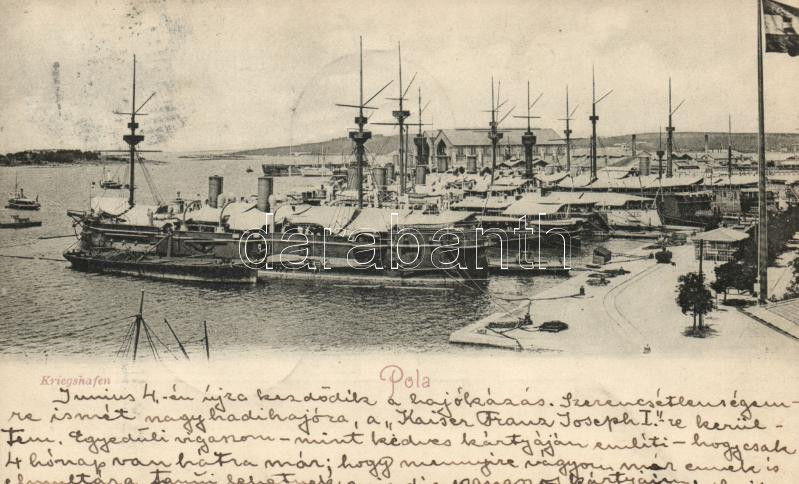 darabanth
Kriegshafen
Pola
Junius 4.-én újra kezdödik a hajókázás. Szerencsétlenségem-
re ismét nagy hadihajóra, a „Kaiser Franz Joseph I."-re kerül-
tem. Egyedüli vigaszom – mint kedves kártyáján emliti – hogy csak
4 hónap van hátra már; hogy mennyire vágyom már ennek is
elmultára, tanú lehetne kártyáim